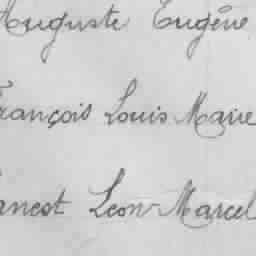 Auguste Eugène
François Louis Marie
rnest Leon Marcel